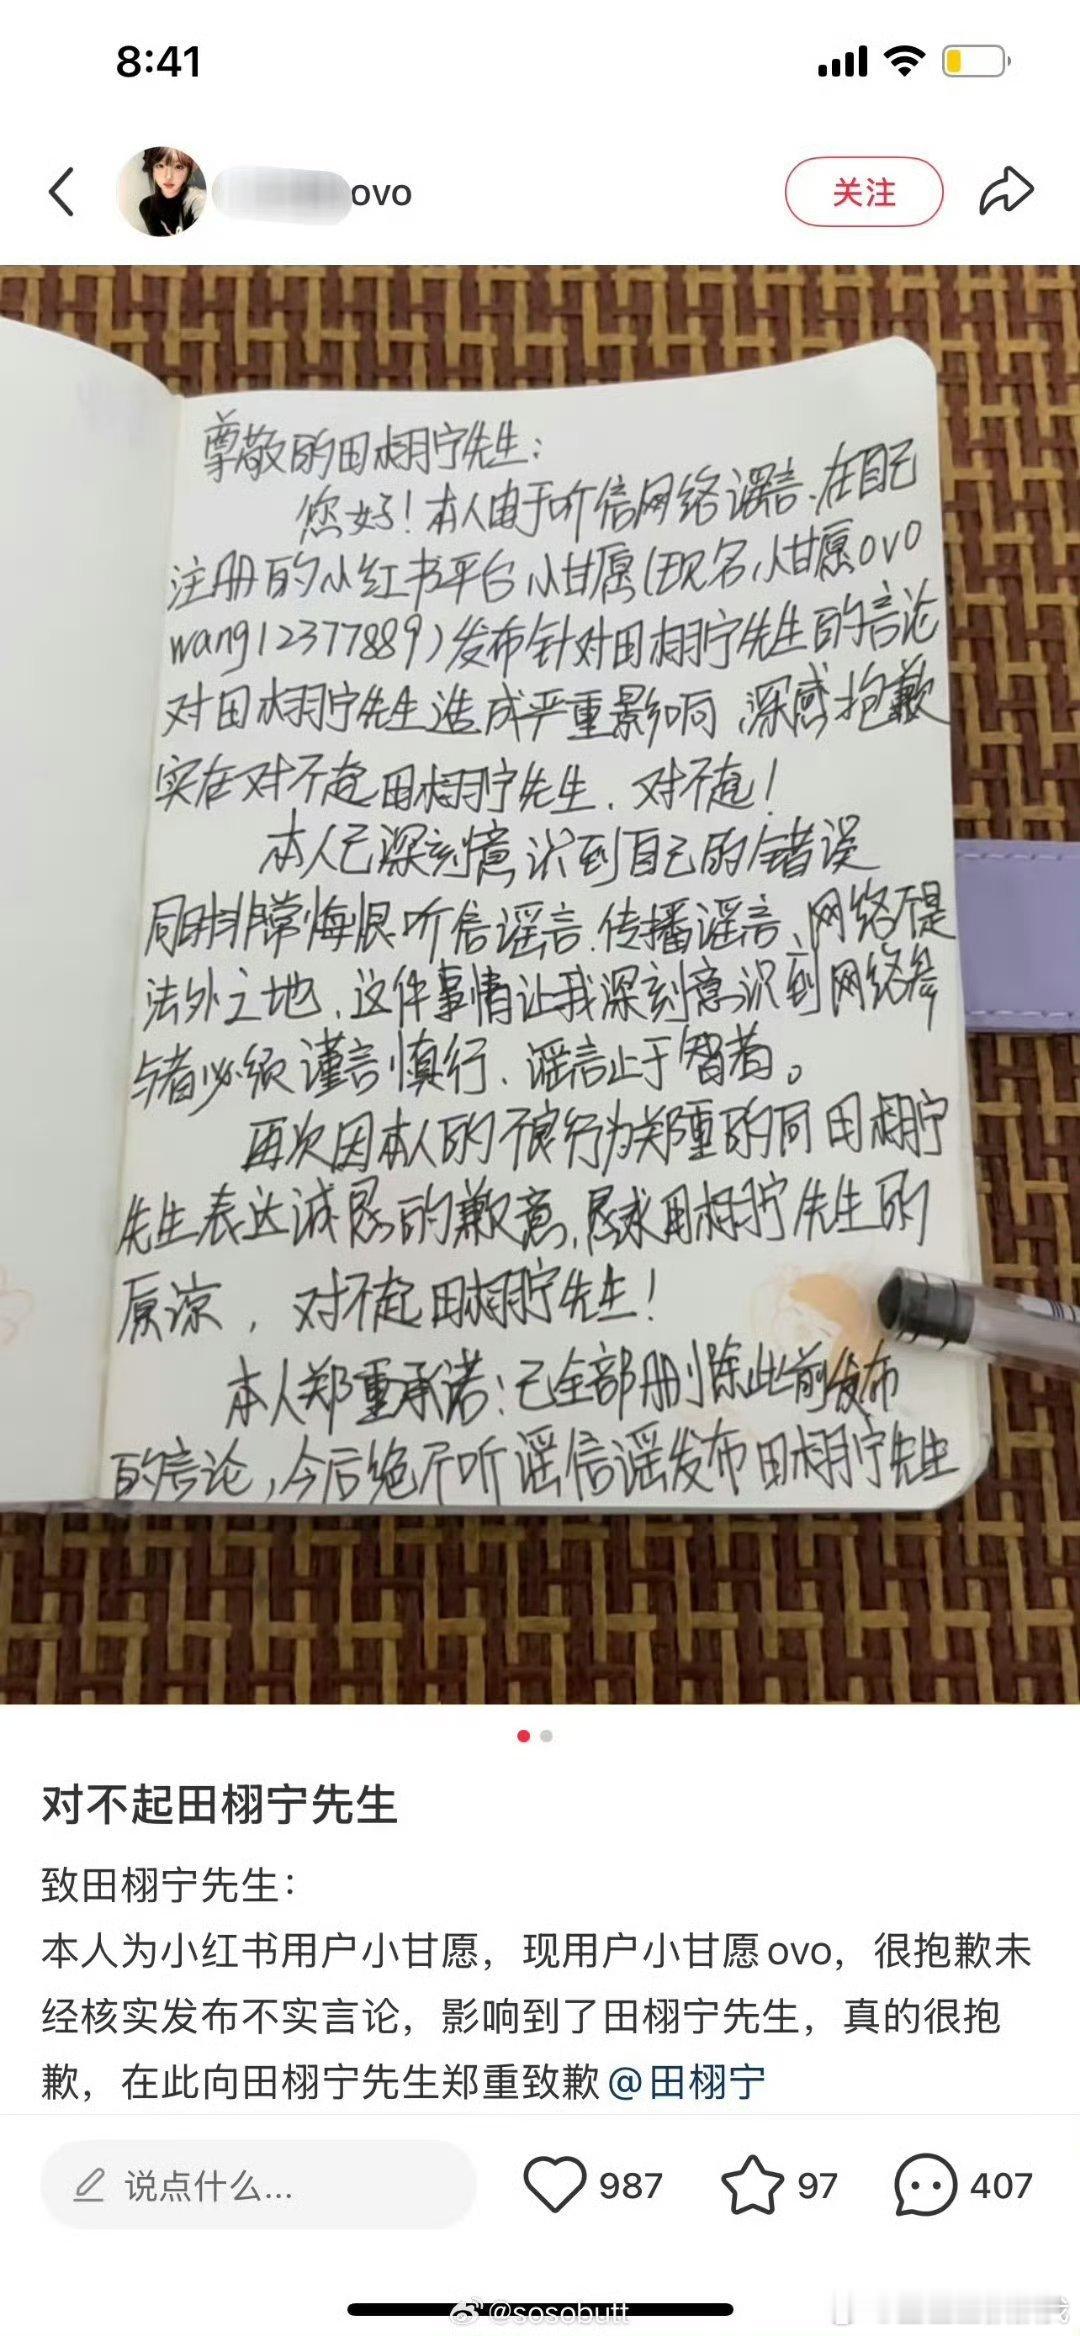 8:41
ovo
关注
尊敬的田栩宁先生:
您好!本人由于听信网络谣言、在自己
注册的小红书平台小甘愿(现名小甘愿ovo
wang12377889)发布针对田栩宁先生的言论
对田栩宁先生造成严重影响、深感抱歉
实在对不起田栩宁先生、对不起!
本人已深刻意识到自己的错误
同时非常悔恨听信谣言、传播谣言、网络不是
法外之地、这件事情让我深刻意识到网络参
与者必须谨言慎行、谣言止于智者。
再次因本人的不良行为郑重的向田栩宁
先生表达诚恳的歉意,恳求田栩宁先生的
原谅,对不起田栩宁先生!
本人郑重承诺:已全部删除此前发布
的言论,今后绝不听谣信谣发布田栩宁先生
对不起田栩宁先生
致田栩宁先生:
本人为小红书用户小甘愿,现用户小甘愿ovo,很抱歉未
经核实发布不实言论,影响到了田栩宁先生,真的很抱
歉,在此向田栩宁先生郑重致歉@田栩宁
说点什么...
987
97
407
@sosobutt